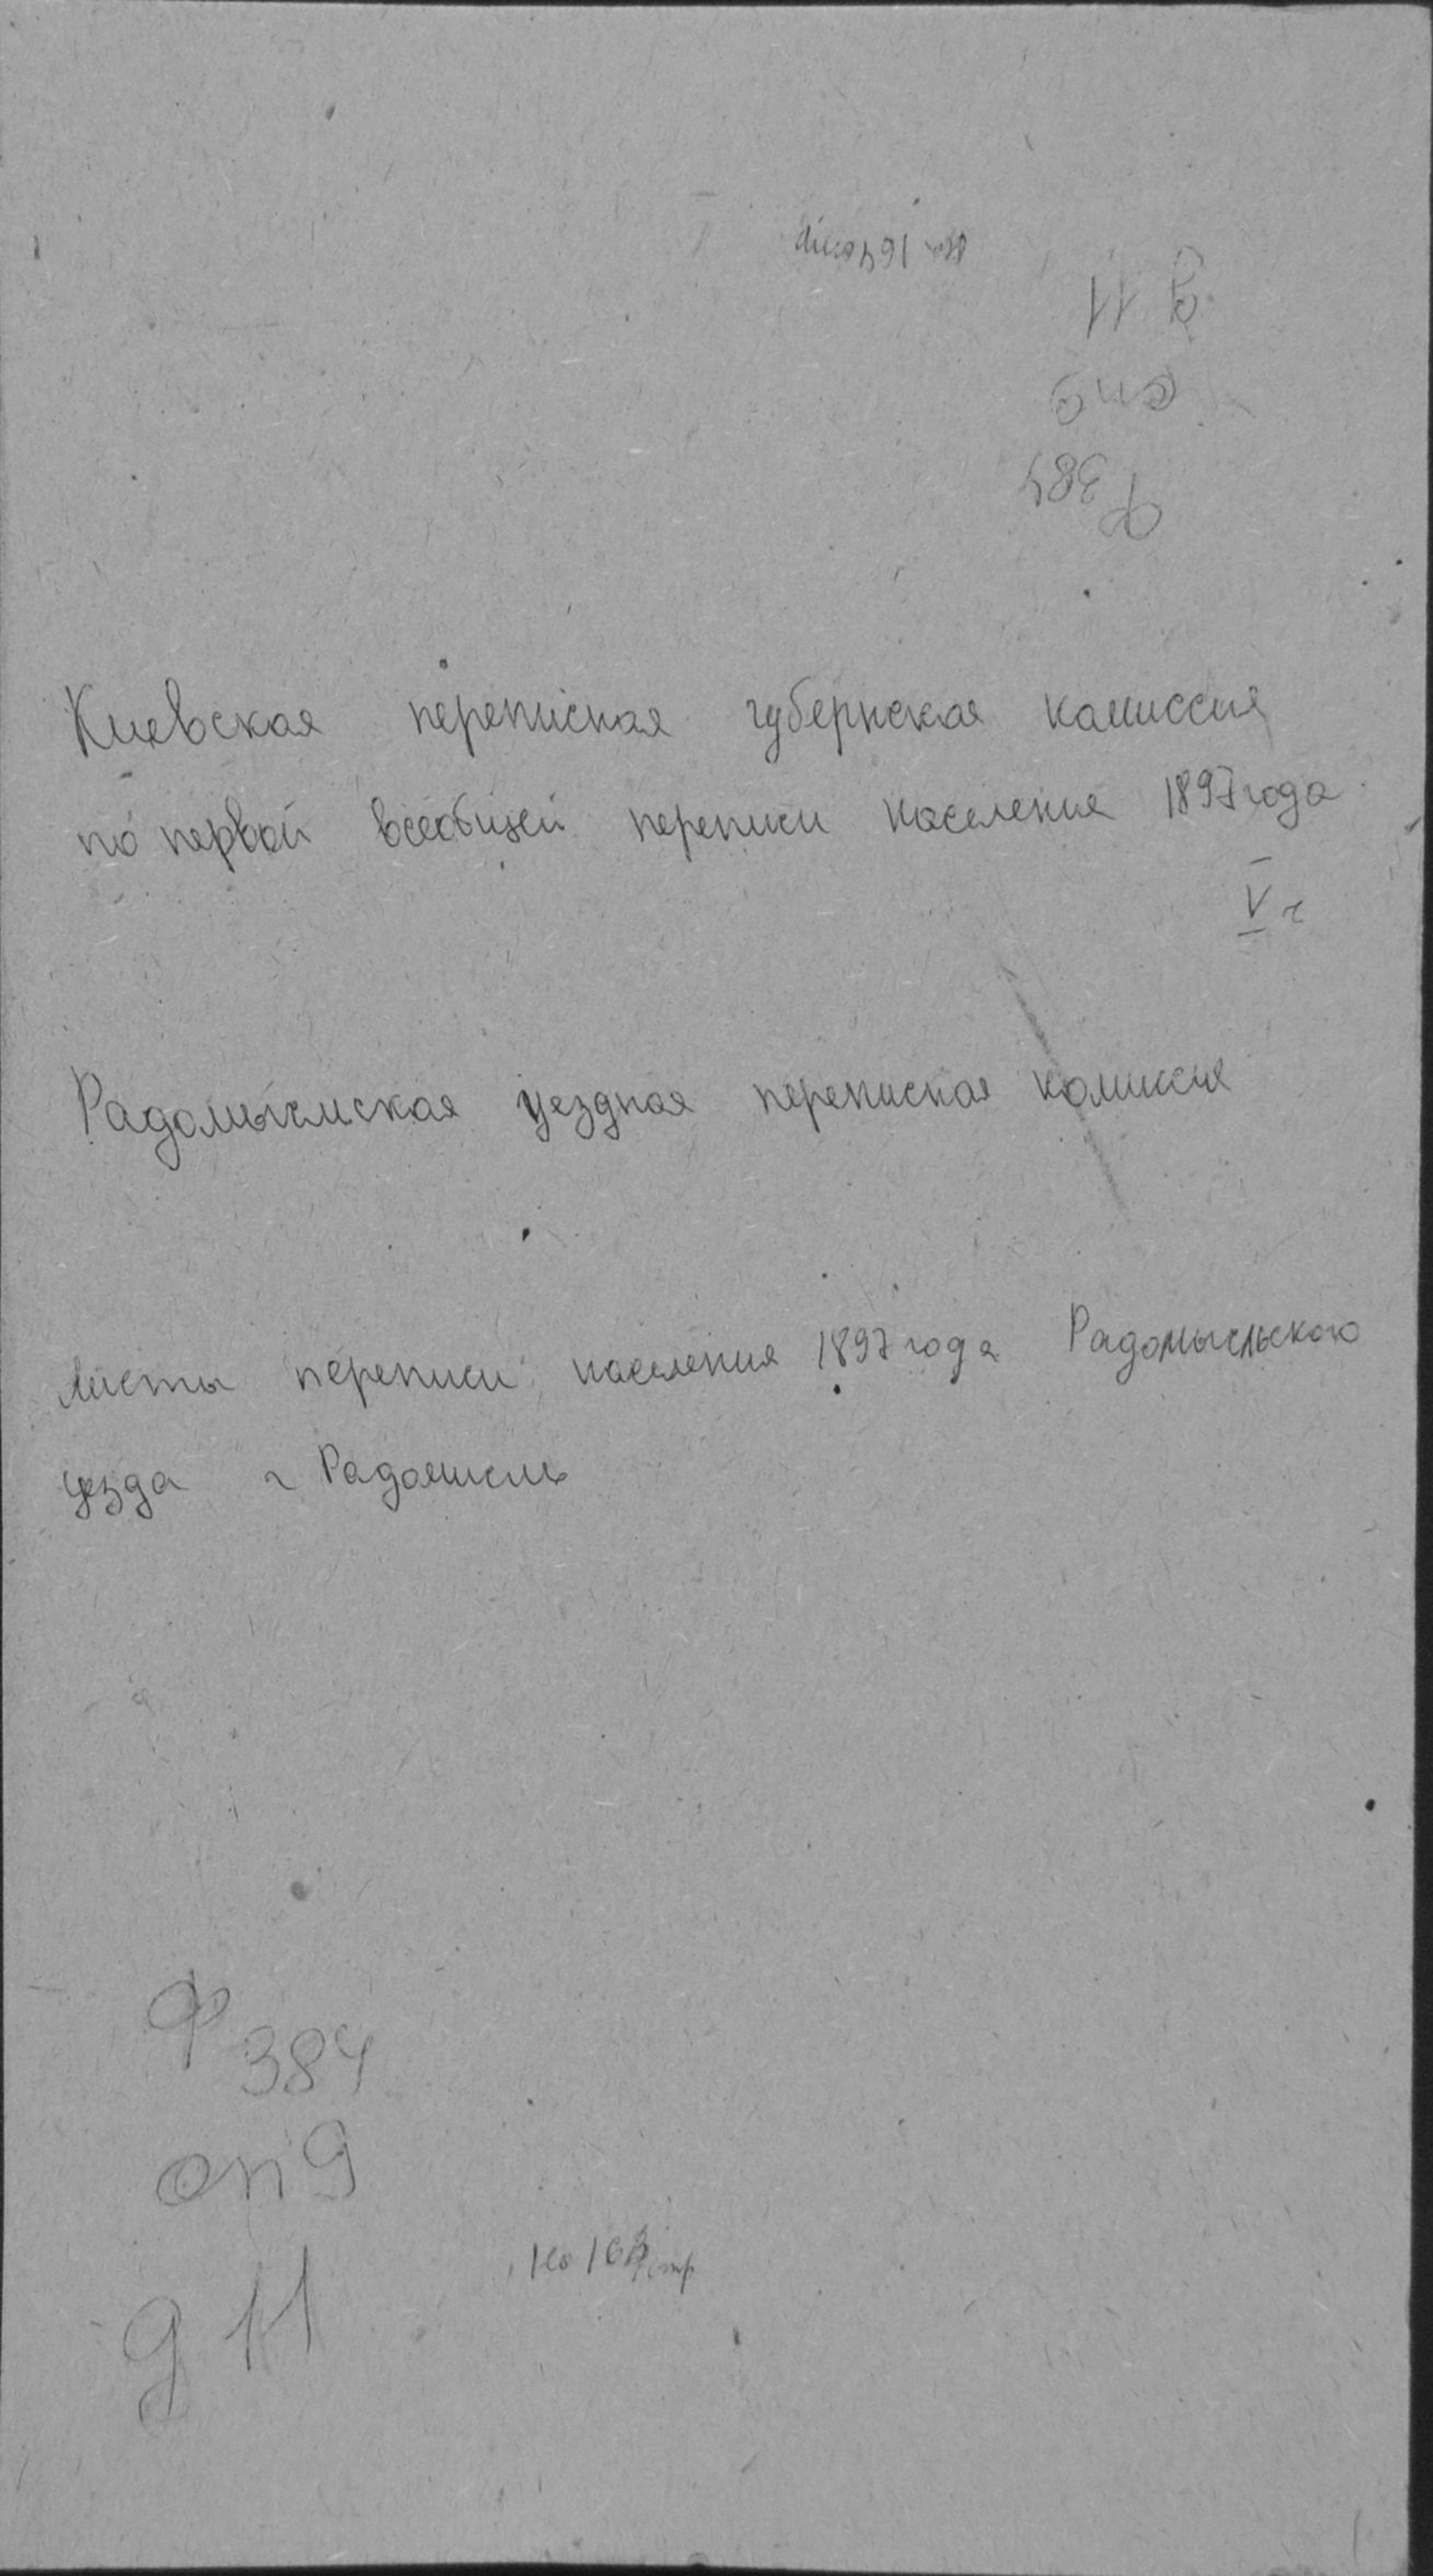 д 11
оп 9
Ф 384
Киевская переписная губернская комиссия
по первой всеобщей переписи населения 1897 года
V ч
Радомысльская уездная переписная комиссия
Листы переписи населения 1897 года Радомысльского
уезда г Радомысль
Ф 384
оп 9
д 11